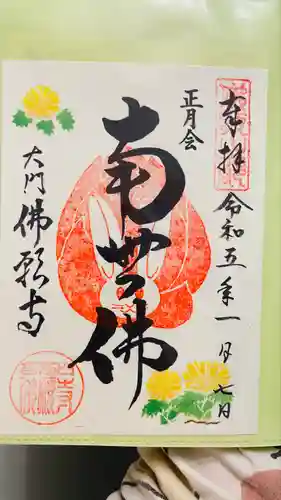 奉拝
令和五年一月七日
正月会
南無佛
大門 佛願寺